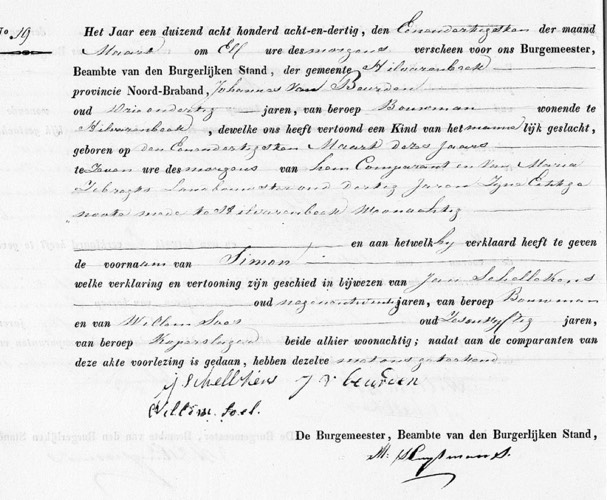 No 19
Het Jaar een duizend acht honderd acht-en-dertig, den Eenendertigsten der maand
Maart om Elf ure des morgens verscheen voor ons Burgemeester,
Beambte van den Burgerlijken Stand, der gemeente Hilvarenbeek
provincie Noord-Braband, Johannes van Beurden
oud drieendertig jaren, van beroep Bouwman wonende te
Hilvarenbeek, dewelke ons heeft vertoond een Kind van het mannelijk geslacht,
geboren op den Eenendertigsten Maart dezes jaars
te Zeven ure des morgens van hem Comparant en van Maria
oud dertig Jaren Zyne Echtge
noote mede te Hilvarenbeek woonachtig
en aan hetwelk hy verklaard heeft te geven
de voornaam van Simon
welke verklaring en vertooning zijn geschied in bijwezen van Jan Schellekens
oud negenentwintig jaren, van beroep Bouwman
en van Willem Soos oud Zesenvyftig jaren,
van beroep Koperslager beide alhier woonachtig; nadat aan de comparanten van
deze akte voorlezing is gedaan, hebben dezelve met ons geteekend
J Schellekens J v beurden
Willem. Soel.
De Burgemeester, Beambte van den Burgerlijken Stand,